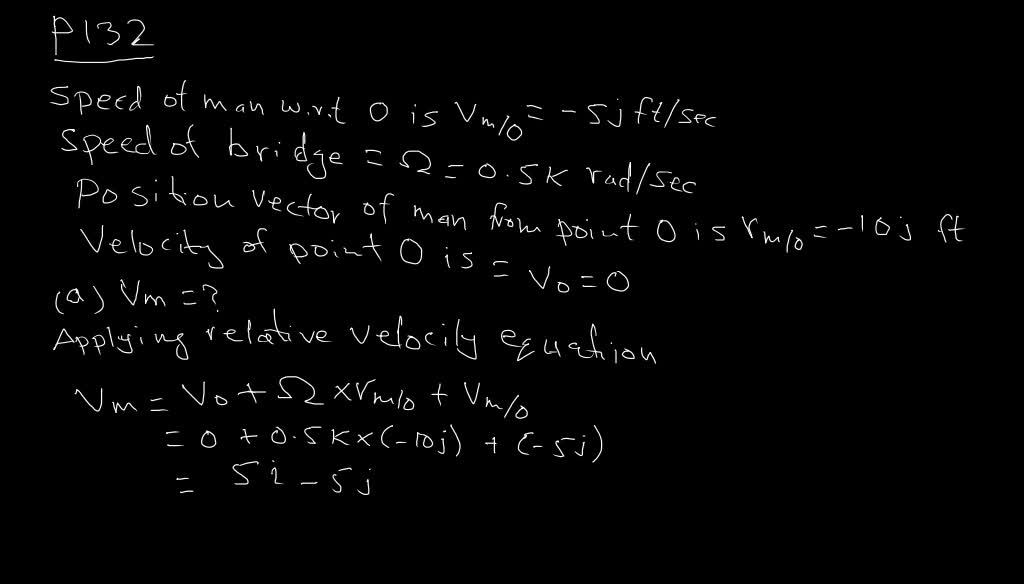 P132
Speed of man w.r.t O is Vm/o = -5j ft/sec
Speed of bridge = Ω = 0.5K rad/sec
Position vector of man from point O is rm/o = -10j ft
Velocity of point O is = Vo = 0
(a) Vm = ?
Applying relative velocity equation
Vm = Vo + Ω × rm/o + Vm/o
= 0 + 0.5K × (-10j) + (-5j)
= 5i - 5j